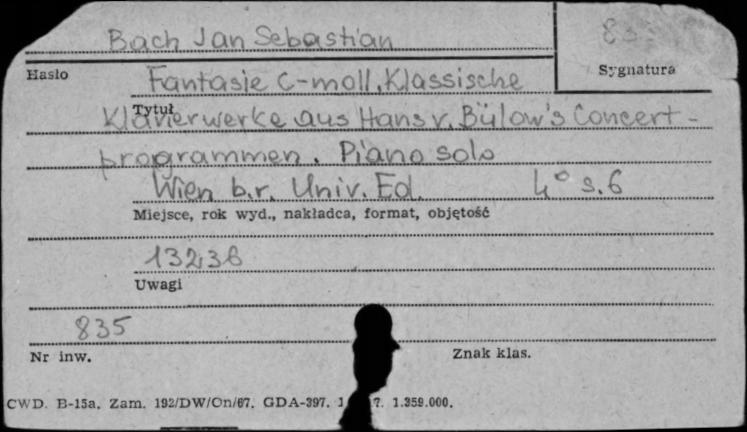 Bach Jan Sebastian
Hasło
Sygnatura
Fantasie c-moll, Klassische
Tytuł
Klavierwerke aus Hans v. Bülow's Concert-
programmen. Piano solo
Wien b.r. Univ. Ed. 4° s. 6
Miejsce, rok wyd., nakładca, format, objętość
13236
Uwagi
835
Nr inw.
Znak klas.
CWD. B-15a. Zam. 192/DW/On/67. GDA-397. 1.359.000.